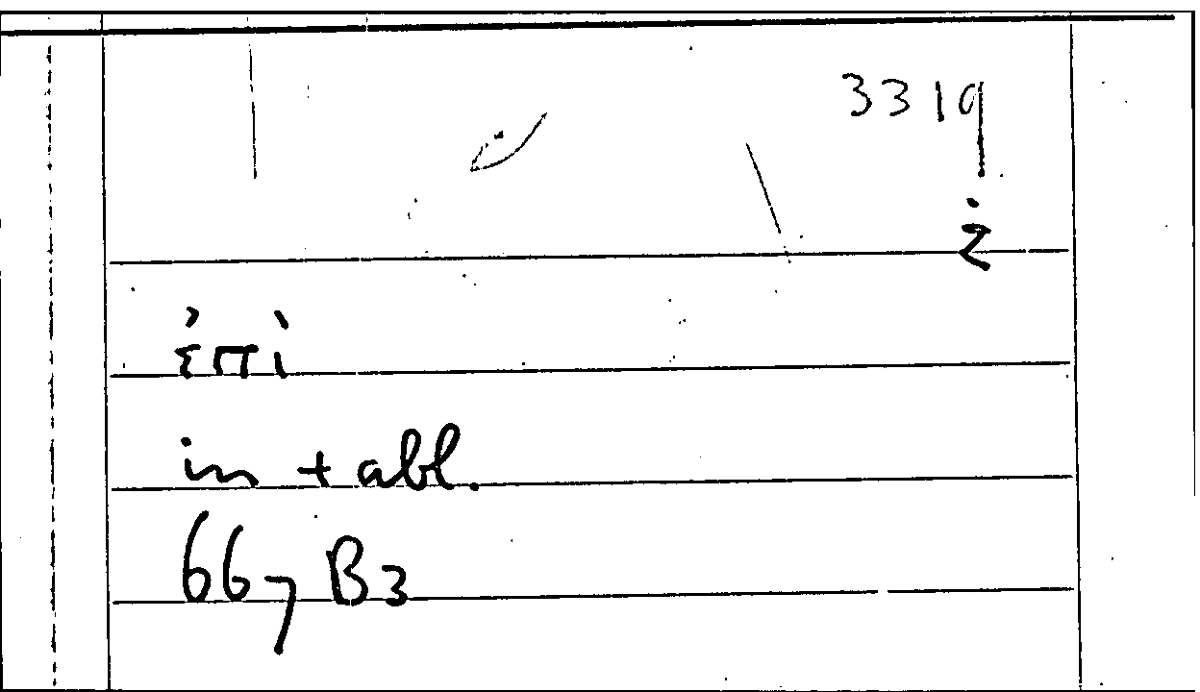 3319
ἐπὶ
in + abl.
667 B3